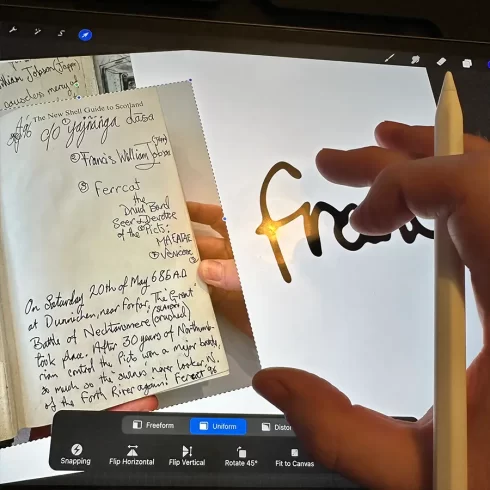 William Jobson (Jappy)
causeless mercy of
The New Shell Guide to Scotland
c/o ① yajñanga dasa
② Francis William Jobson
③ Ferrcat
the
Druid Bard
Seer & Devotee
of the Picts:
MAEATAE
① VENICONE ②
On Saturday, 20th of May 685 A.D
at Dunnichen, near Forfar, The "Great"
Battle of Nechtansmere (crushed)
took place. After 30 years of Northumb-
rian control the Picts won a major battle,
so much so the never N.
of the Forth River again! Ferrcat 96
fran
Freeform
Uniform
Distor
Snapping
Flip Horizontal
Flip Vertical
Rotate 45°
Fit to Canvas